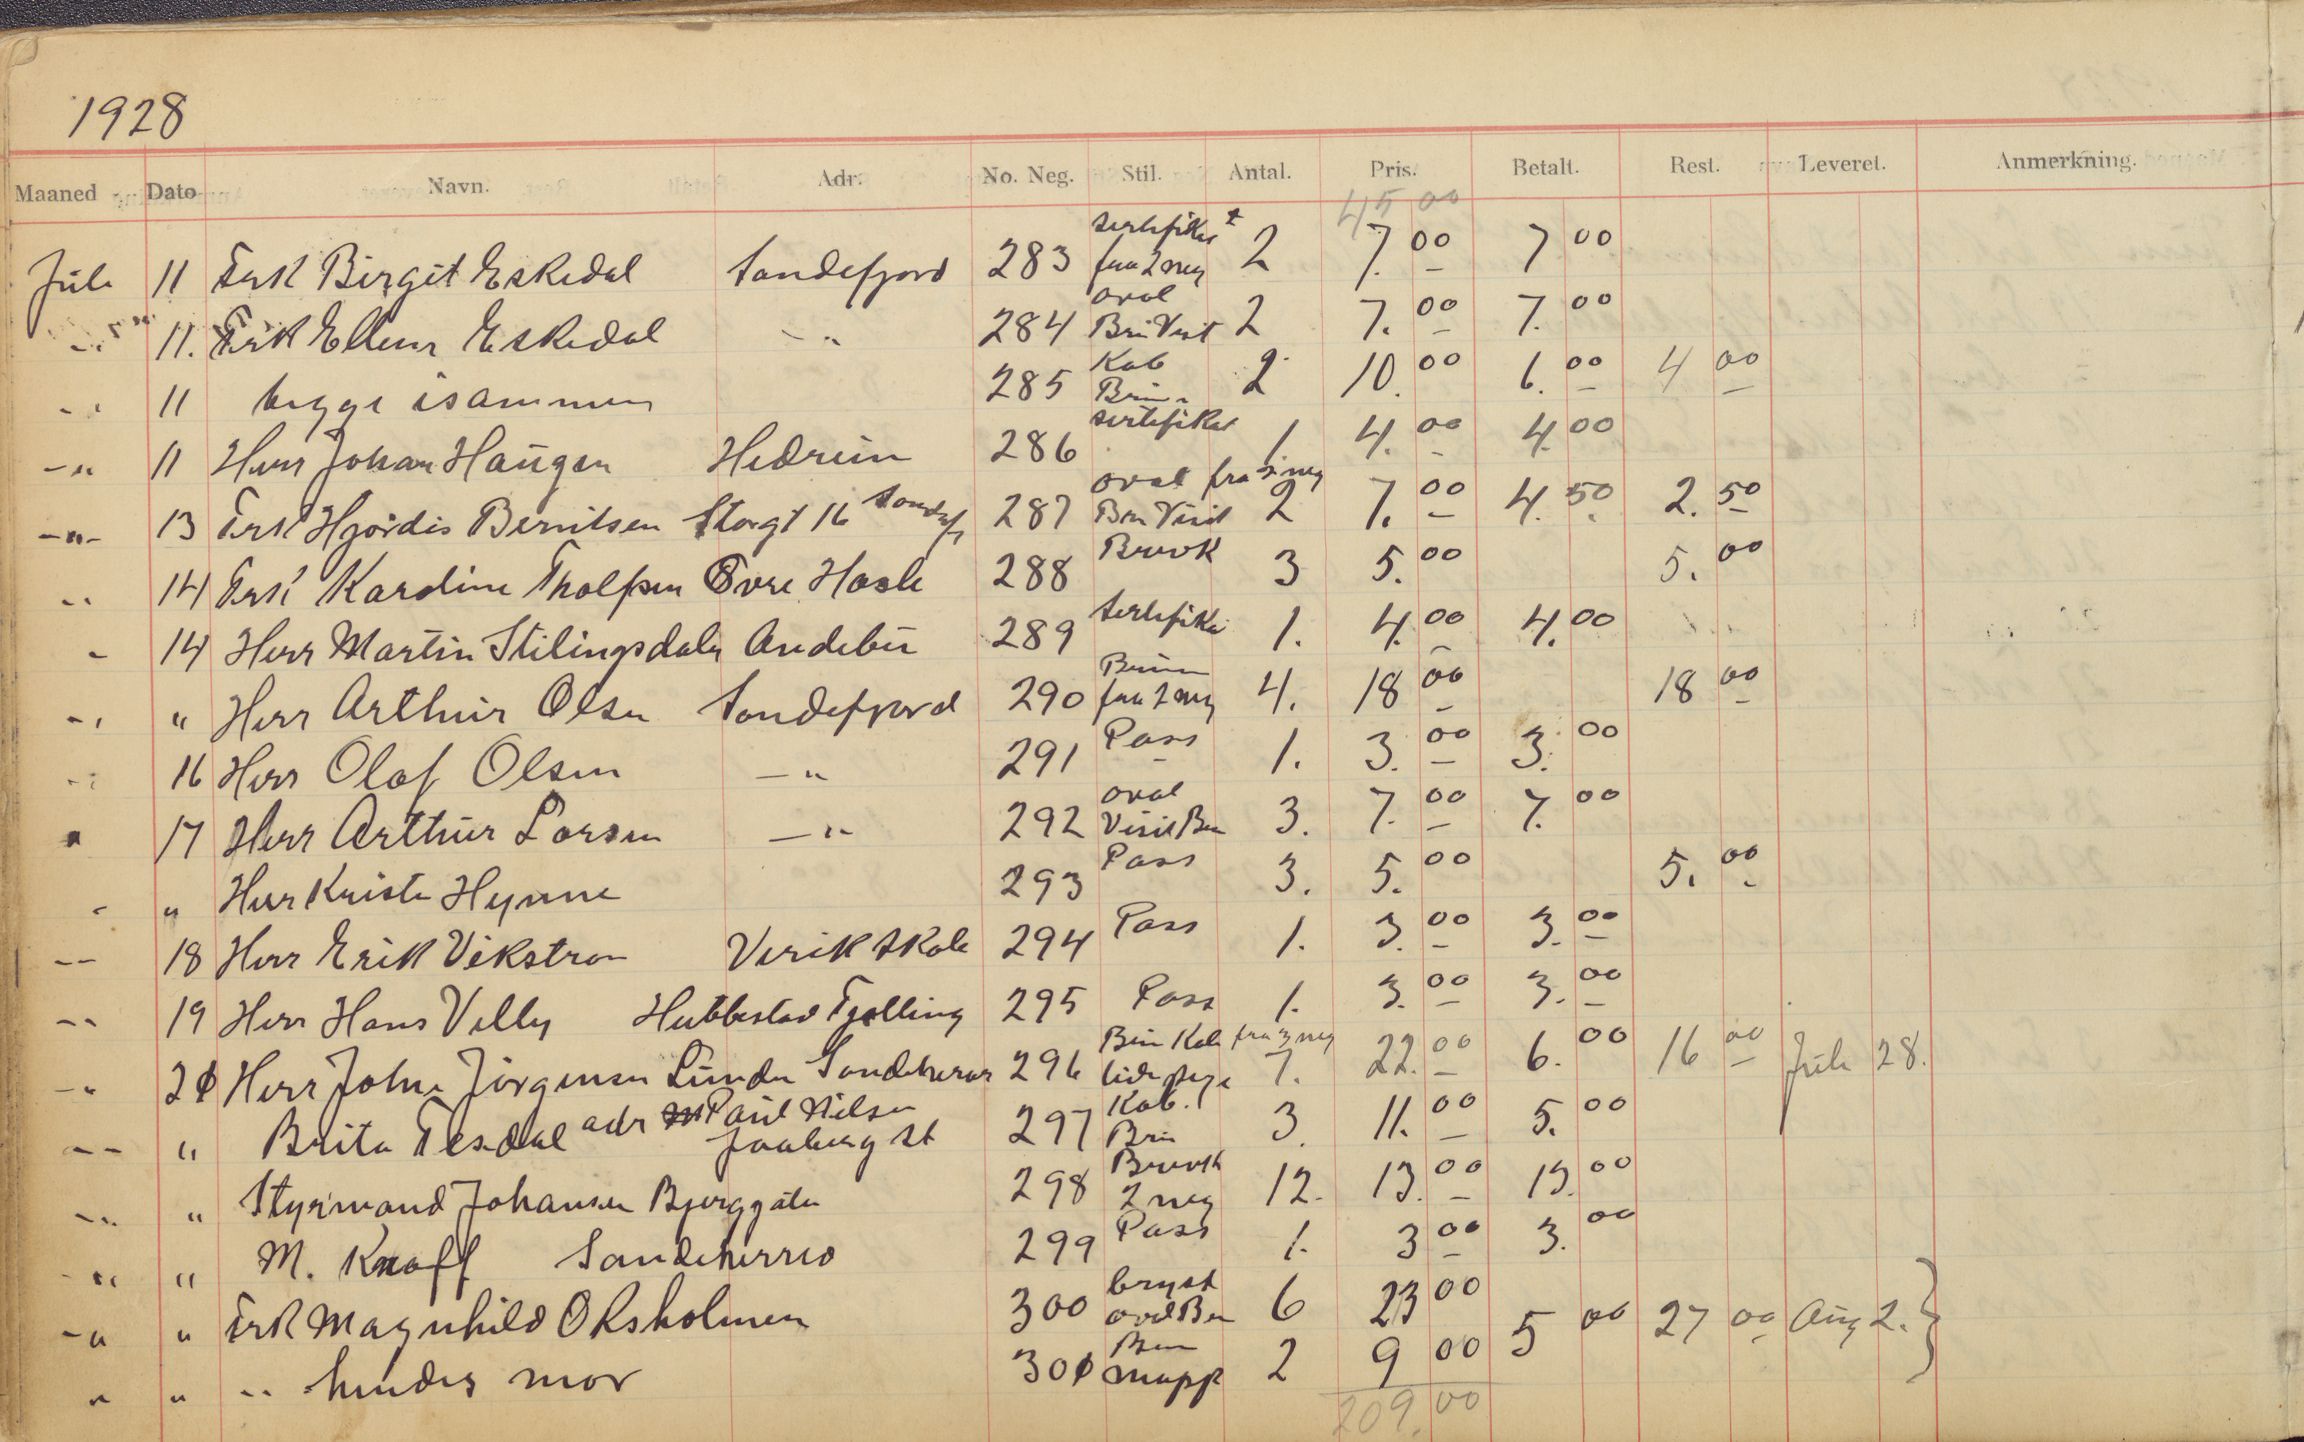 1928
Maaned Dato Navn. Adr. No. Neg. Stil. Antal. Pris. Betalt. Rest. Leveret. Anmerkning.
45 00
Juli 11 Frk Birgit Eskedal Sandefjord 283 fra 2 neg 2 7. 00 7 00
-"- 11. Frk Ellen Eskedal -"- 284 oval Brun Visit 2 7. 00 7. 00
-"- 11 begge isammen 285 Kab Brun 2 10. 00 6. 00 4 00
-"- 11 Herr Johan Haugen Hedrum 286 sertifikat 1 4. 00 4. 00
-"- 13 Frk Hjørdis Berntsen Storgt 16 Sandefj 287 oval fra 2 neg Brun Visit 2 7. 00 4. 50 2. 50
-"- 14 Frk Karoline Tholfsen Øvre Hasle 288 Brevk 3 5. 00 5. 00
" 14 Herr Martin Stilingsdalen Andebu 289 1. 4. 00 4. 00
-"- " Herr Arthur Olsen Sandefjord 290 Brun fra 2 neg 4. 18 00 18 00
-"- 16 Herr Olaf Olsen -"- 291 Pass 1. 3. 00 3. 00
" 17 Herr Arthur Larsen -"- 292 oval Visit Brun 3. 7. 00 7. 00
" " Herr Kristen Hynne 293 Pass 3. 5. 00 5. 00
-"- 18 Herr Erik Vikstrøm Virik Skole 294 Pass 1. 3. 00 3. 00
-"- 19 Herr Hans Velly Hubbestad Tjølling 295 Pass 1. 3. 00 3. 00
-"- 20 Herr John Jørgensen Lunden Sandeherrer 296 Brun Kab fra 3 neg 7. 22. 00 6. 00 16 00 Juli 28.
-"- " Brita Tesdal adr Paul Nilsen 297 Kab. Brun 3. 11. 00 5. 00
-"- " Styrmand Johansen Bjerggaten 298 Brevk 2 neg 12. 13. 00 13. 00
-"- " M. Knoff Sandeherred 299 Pass 1. 3 00 3. 00
-"- " Frk Magnhild Oksholmen 300 bryst oval Brun 6 23 00 5 00 27 00 Aug 2.
" " -"- hendes mor 300 Brun mapp 2 9 00
209. 00